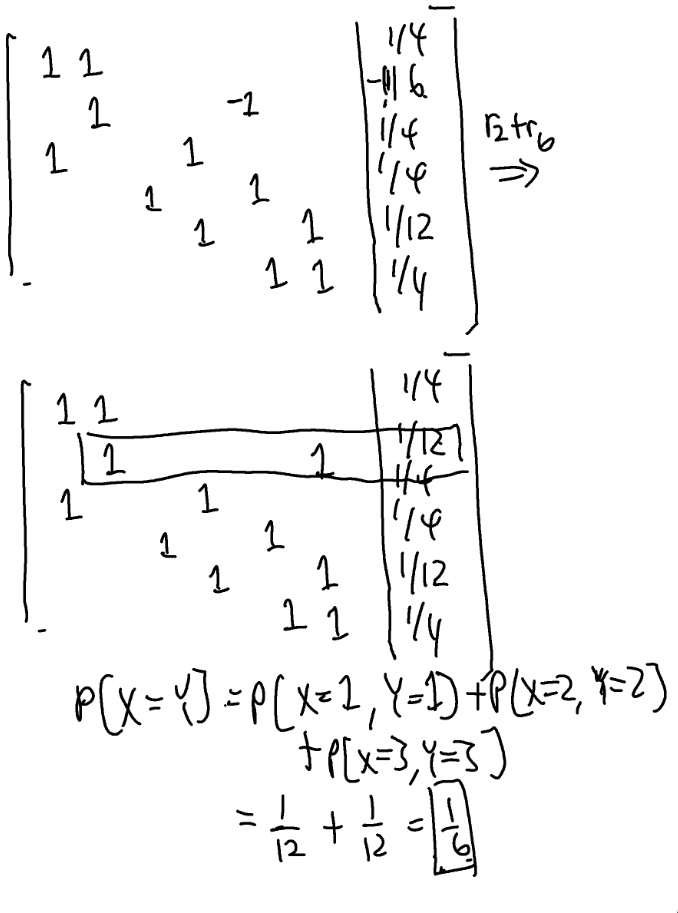 1 1 1/4
1 -1 -1/6
1 1 1/4
1 1 1/4 r₂+r₆ ⇒
1 1 1/12
1 1 1/4
1 1 1/4
1 1 1/12
1 1 1/4
1 1 1/4
1 1 1/12
1 1 1/4
P(X=Y) = P(X=1, Y=1) + P(X=2, Y=2)
+ P(X=3, Y=3)
= 1/12 + 1/12 = 1/6